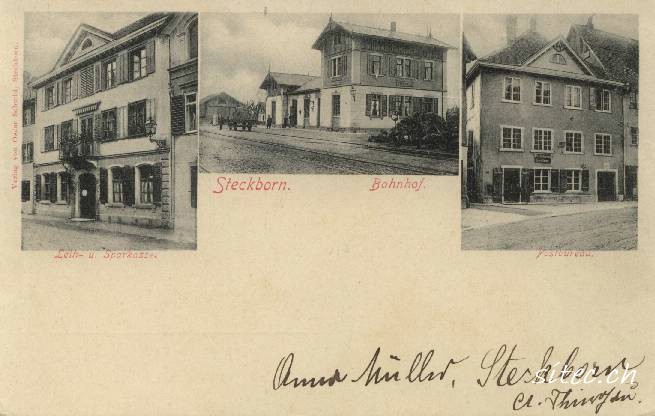 Verlag von Oscar Schmid, Steckborn.
Steckborn.
Bahnhof.
Leih- u. Sparkasse.
Postbureau.
Anna Müller, Steckborn
Ct. Thurgau.
sitec.ch